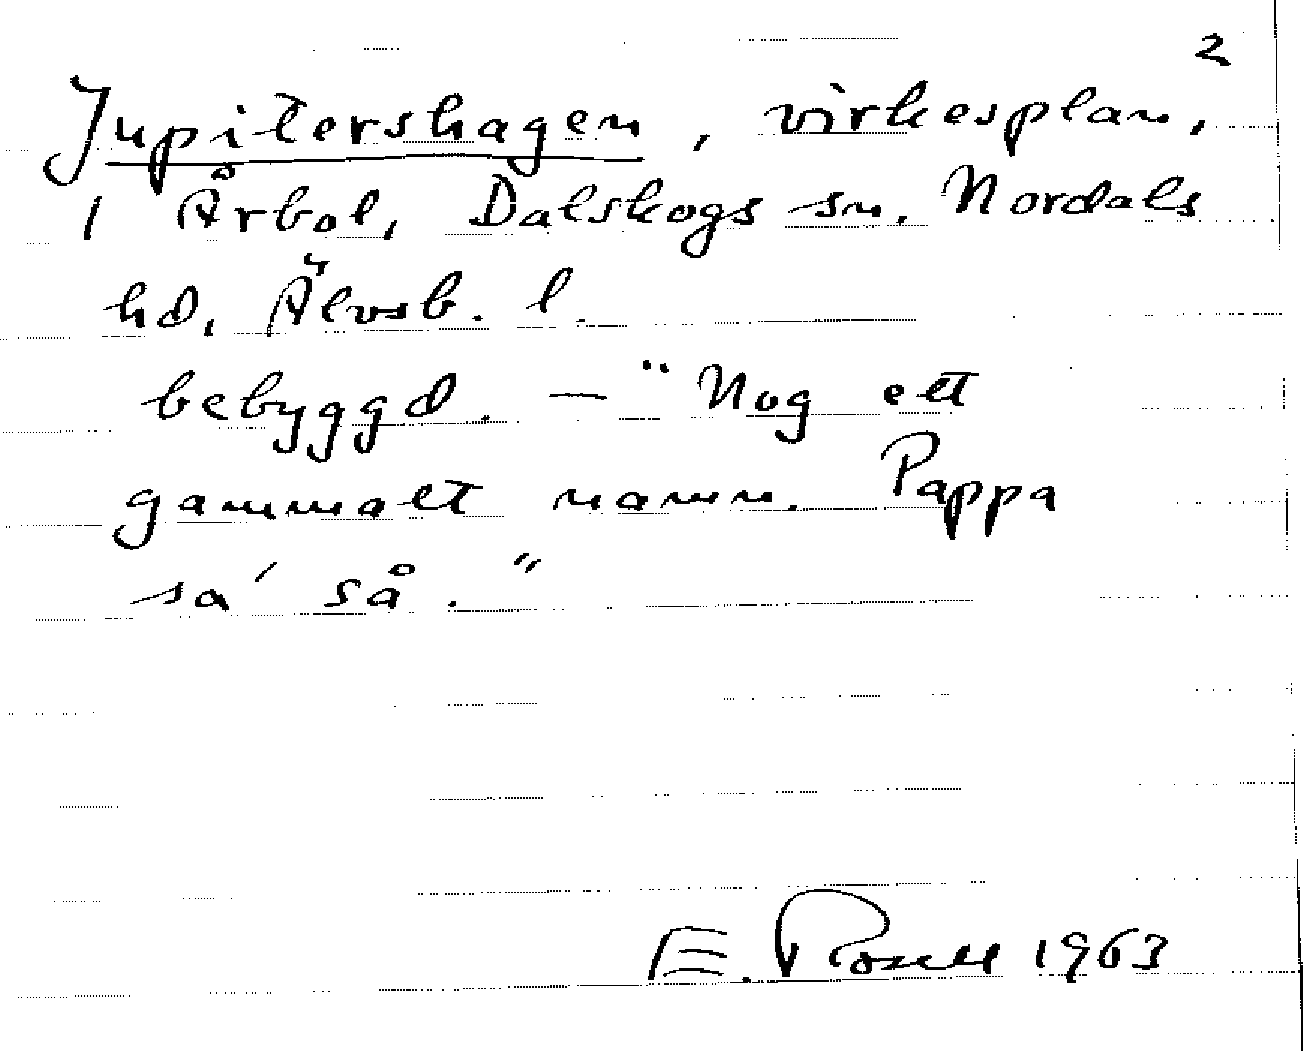 2
Jupitershagen, virkesplan,
i Årbol, Dalskogs sn. Nordals
hd, Älvsb. l.
bebyggd. — "Nog ett
gammalt namn. Pappa
sa' så."
E. Rosell 1963